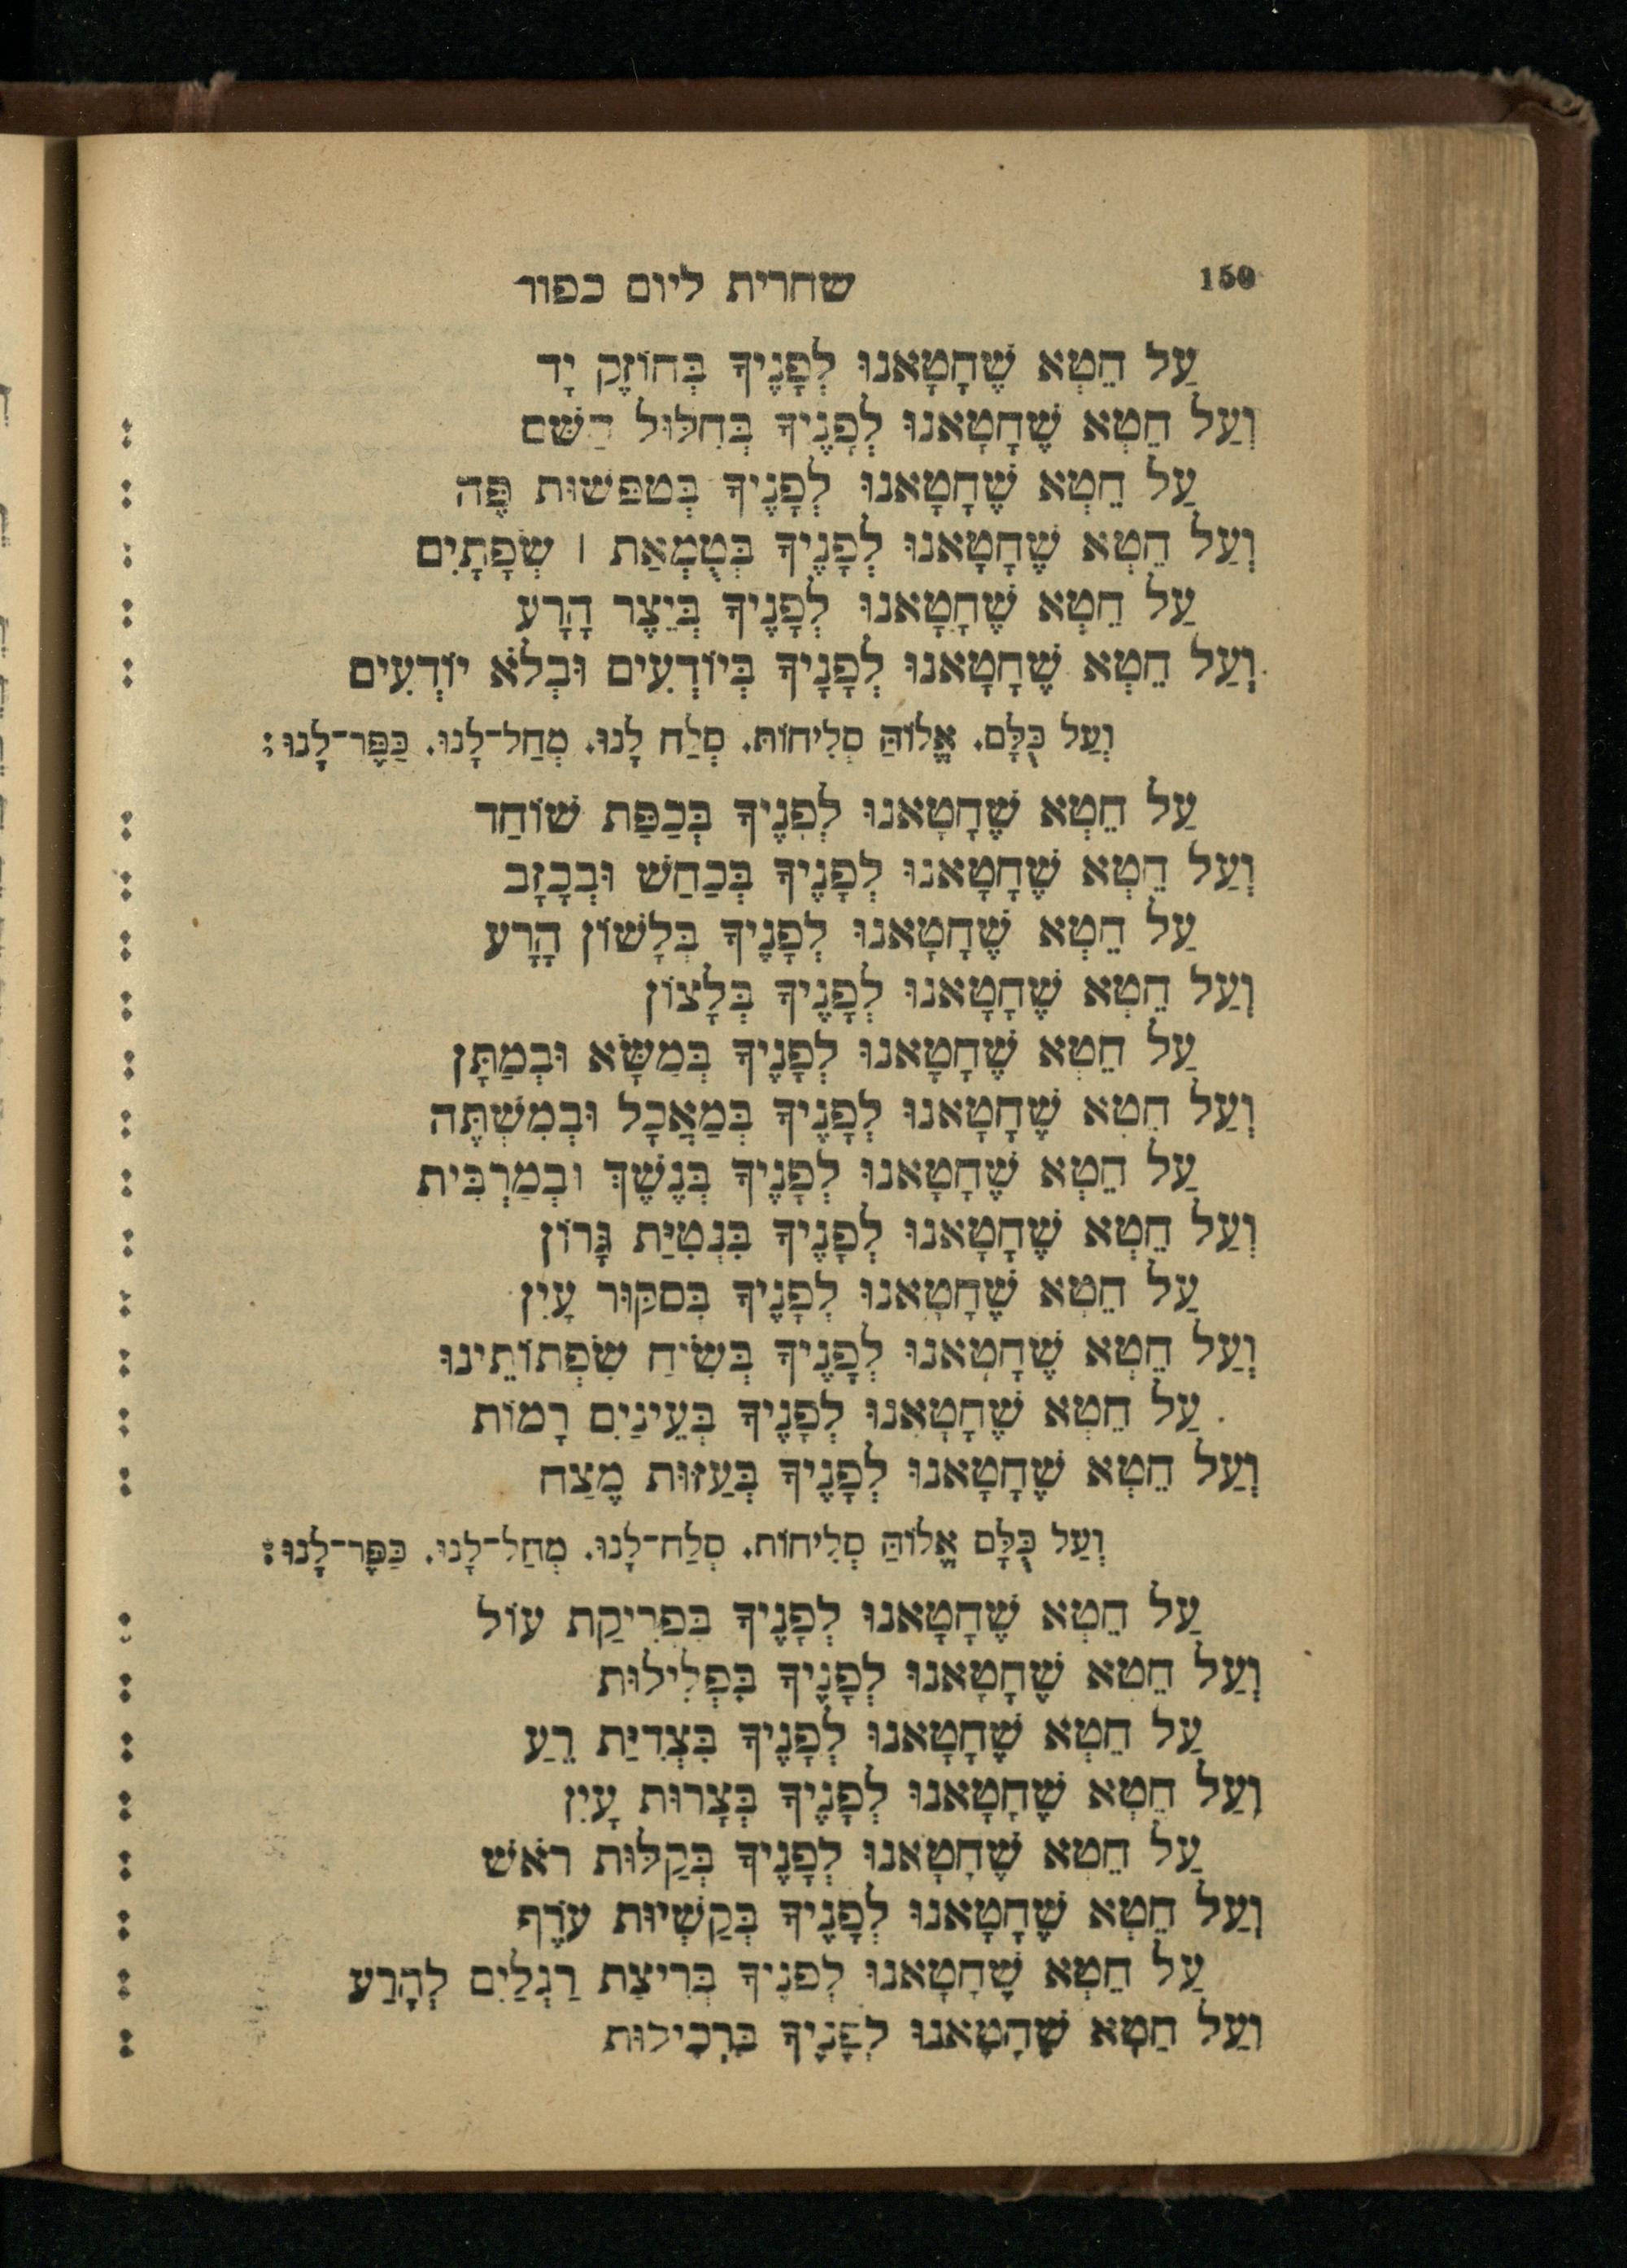 150 שחרית ליום כפור
עַל חֵטְא שֶׁחָטָאנוּ לְפָנֶיךָ בְּחוֹזֶק יָד
וְעַל חֵטְא שֶׁחָטָאנוּ לְפָנֶיךָ בְּחִלּוּל הַשֵּׁם :
עַל חֵטְא שֶׁחָטָאנוּ לְפָנֶיךָ בְּטִפְּשׁוּת פֶּה :
וְעַל חֵטְא שֶׁחָטָאנוּ לְפָנֶיךָ בְּטֻמְאַת ׀ שְׂפָתָיִם :
עַל חֵטְא שֶׁחָטָאנוּ לְפָנֶיךָ בְּיֵצֶר הָרָע :
וְעַל חֵטְא שֶׁחָטָאנוּ לְפָנָיךָ בְּיוֹדְעִים וּבְלֹא יוֹדְעִים :
וְעַל כֻּלָּם. אֱלוֹהַּ סְלִיחוֹת. סְלַח לָנוּ. מְחַל־לָנוּ. כַּפֶּר־לָנוּ :
עַל חֵטְא שֶׁחָטָאנוּ לְפָנֶיךָ בְּכַפַּת שׁוֹחַד :
וְעַל חֵטְא שֶׁחָטָאנוּ לְפָנֶיךָ בְּכַחַשׁ וּבְכָזָב :
עַל חֵטְא שֶׁחָטָאנוּ לְפָנֶיךָ בְּלָשׁוֹן הָרָע :
וְעַל חֵטְא שֶׁחָטָאנוּ לְפָנֶיךָ בְּלָצוֹן :
עַל חֵטְא שֶׁחָטָאנוּ לְפָנֶיךָ בְּמַשָּׂא וּבְמַתָּן :
וְעַל חֵטְא שֶׁחָטָאנוּ לְפָנֶיךָ בְּמַאֲכָל וּבְמִשְׁתֶּה :
עַל חֵטְא שֶׁחָטָאנוּ לְפָנֶיךָ בְּנֶשֶׁךְ וּבְמַרְבִּית :
וְעַל חֵטְא שֶׁחָטָאנוּ לְפָנֶיךָ בִּנְטִיַּת גָּרוֹן :
עַל חֵטְא שֶׁחָטָאנוּ לְפָנֶיךָ בְּסִקּוּר עָיִן :
וְעַל חֵטְא שֶׁחָטָאנוּ לְפָנֶיךָ בְּשִׂיחַ שִׂפְתוֹתֵינוּ :
עַל חֵטְא שֶׁחָטָאנוּ לְפָנֶיךָ בְּעֵינַיִם רָמוֹת :
וְעַל חֵטְא שֶׁחָטָאנוּ לְפָנֶיךָ בְּעַזּוּת מֶצַח :
וְעַל כֻּלָּם אֱלוֹהַּ סְלִיחוֹת. סְלַח־לָנוּ. מְחַל־לָנוּ. כַּפֶּר־לָנוּ :
עַל חֵטְא שֶׁחָטָאנוּ לְפָנֶיךָ בִּפְרִיקַת עוֹל :
וְעַל חֵטְא שֶׁחָטָאנוּ לְפָנֶיךָ בִּפְלִילוּת :
עַל חֵטְא שֶׁחָטָאנוּ לְפָנֶיךָ בִּצְדִיַּת רֵעַ :
וְעַל חֵטְא שֶׁחָטָאנוּ לְפָנֶיךָ בְּצָרוּת עָיִן :
עַל חֵטְא שֶׁחָטָאנוּ לְפָנֶיךָ בְּקַלּוּת רֹאשׁ :
וְעַל חֵטְא שֶׁחָטָאנוּ לְפָנֶיךָ בְּקַשְׁיוּת עוֹרֶף :
עַל חֵטְא שֶׁחָטָאנוּ לְפָנֶיךָ בְּרִיצַת רַגְלַיִם לְהָרַע :
וְעַל חֵטְא שֶׁחָטָאנוּ לְפָנֶיךָ בִּרְכִילוּת :